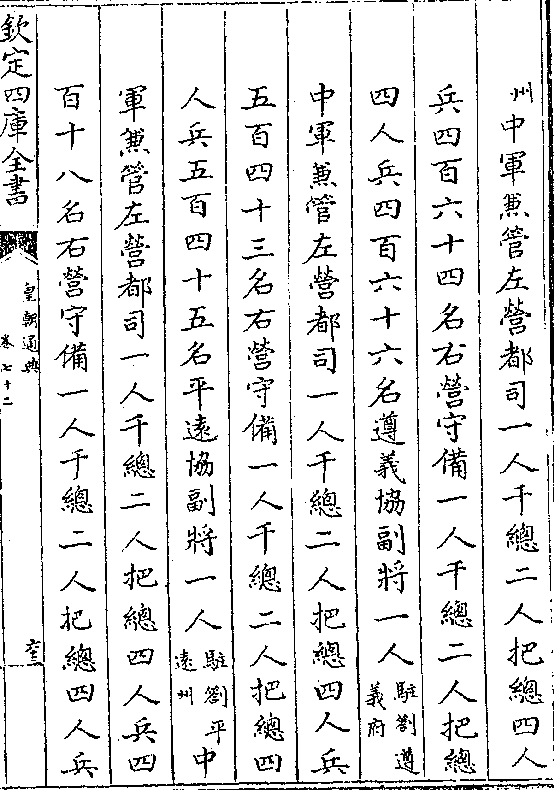 州中軍兼管左營都司一人千總二人把總四人
兵四百六十四名右營守備一人千總二人把總
四人兵四百六十六名遵義協副將一人駐劄遵義府
中軍兼管左營都司一人千總二人把總四人兵
五百四十三名右營守備一人千總二人把總四
人兵五百四十五名平遠協副將一人駐劄平遠州中
軍兼管左營都司一人千總二人把總四人兵四
百十八名右營守備一人千總二人把總四人兵
欽定四庫全書
皇朝通典
卷七十二
六三